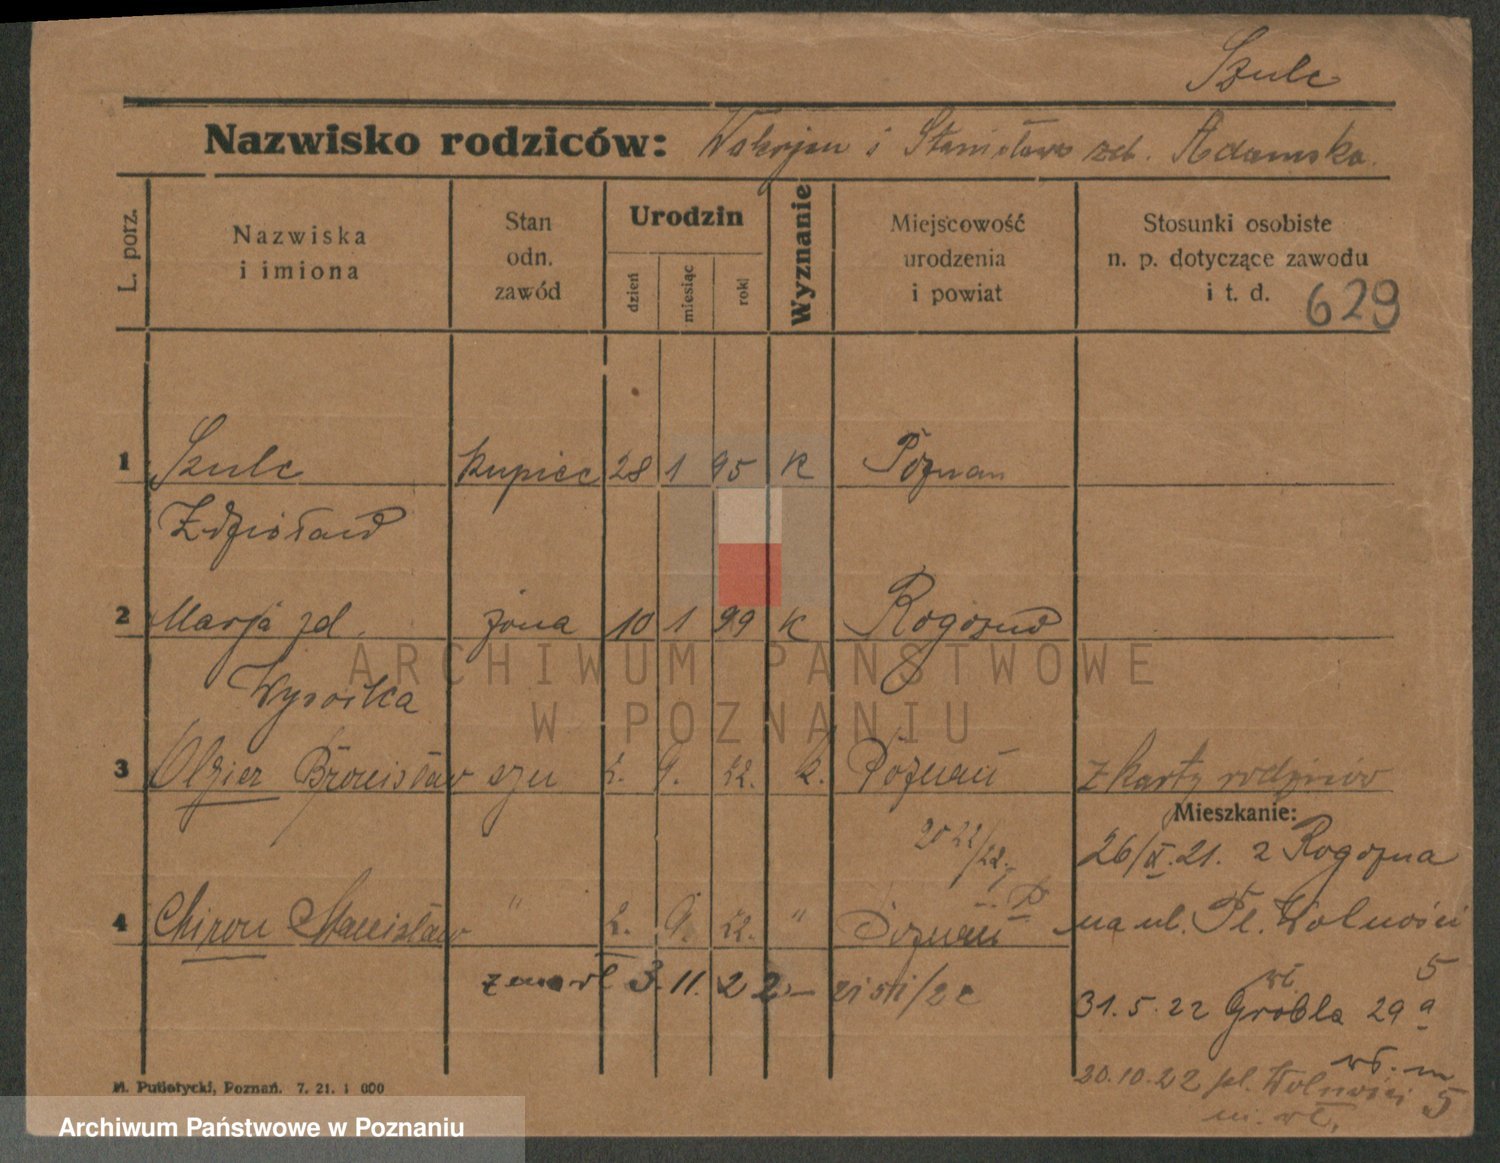 Szulc
Nazwisko rodziców: i Stanisława zd. Adamska.
L. porz.
Nazwiska
i imiona
Stan
odn.
zawód
Urodzin
dzień
miesiąc
rok
Wyznanie
Miejscowość
urodzenia
i powiat
Stosunki osobiste
n. p. dotyczące zawodu
i t. d.
629
1 Szulc kupiec 28 1 95 K Poznan
Zdzisław
2 Marja zd. żona 10 1 99 K Rogozno
Wysocka
ARCHIWUM PAŃSTWOWE
W POZNANIU
3 Bronisław syn 2. 9. 22. k. Poznań z karty rodziców
Mieszkanie:
26/ 21. z Rogozna
4 Stanisław " 2. 9. 22. " Poznań na ul. Pl. Wolności
5
zmarł 3. 11. 22
31. 5. 22 Grobla 29 a
20. 10. 22 pl. Wolności 5
M. Putiatycki, Poznań. 7. 21. 1 000
Archiwum Państwowe w Poznaniu